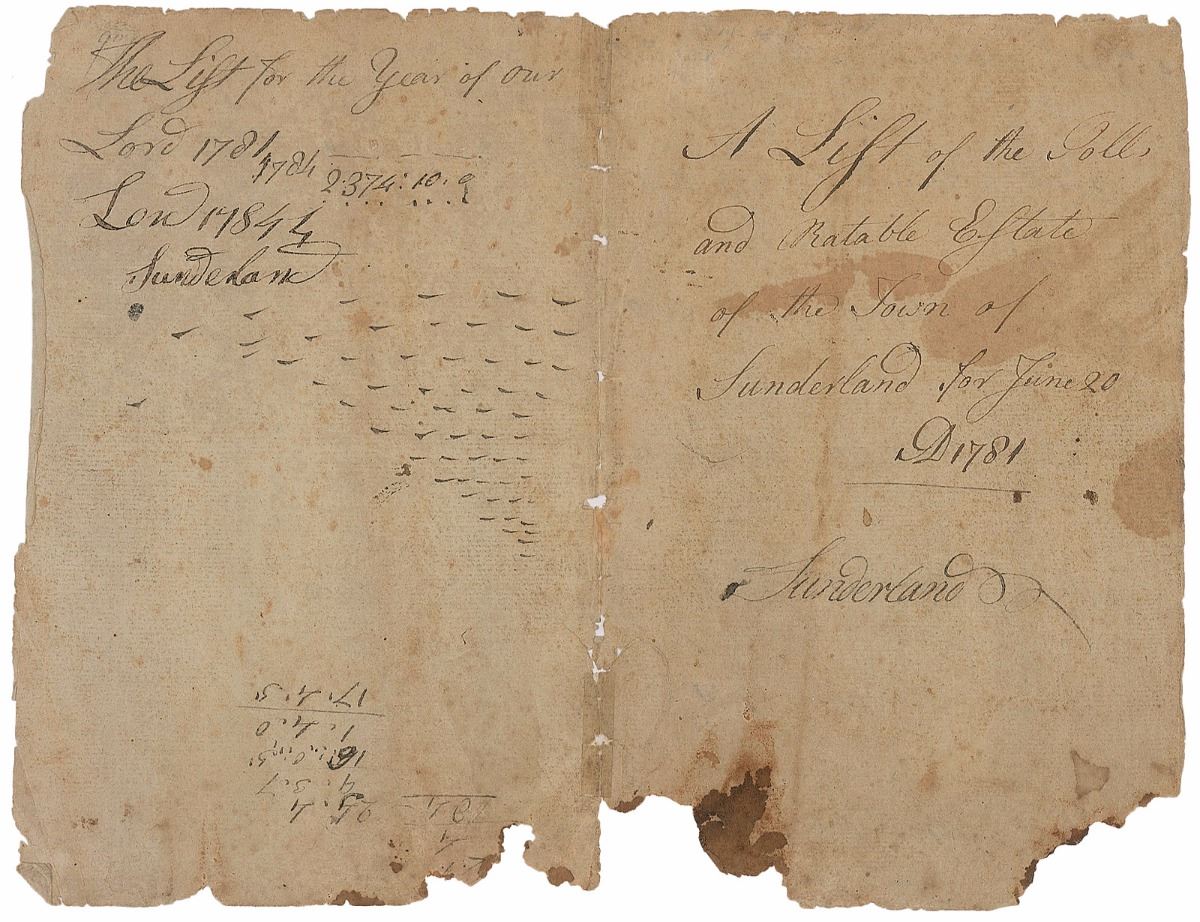 The List for the Year of our
Lord 1781
1784
2374:10:9
Lord 1784 4
Sunderland
17:4:5
1:4:0
16:0:5
4:3:7
A List of the Polls
and Ratable Estate
of the Town of
Sunderland for June 20
AD 1781
Sunderland